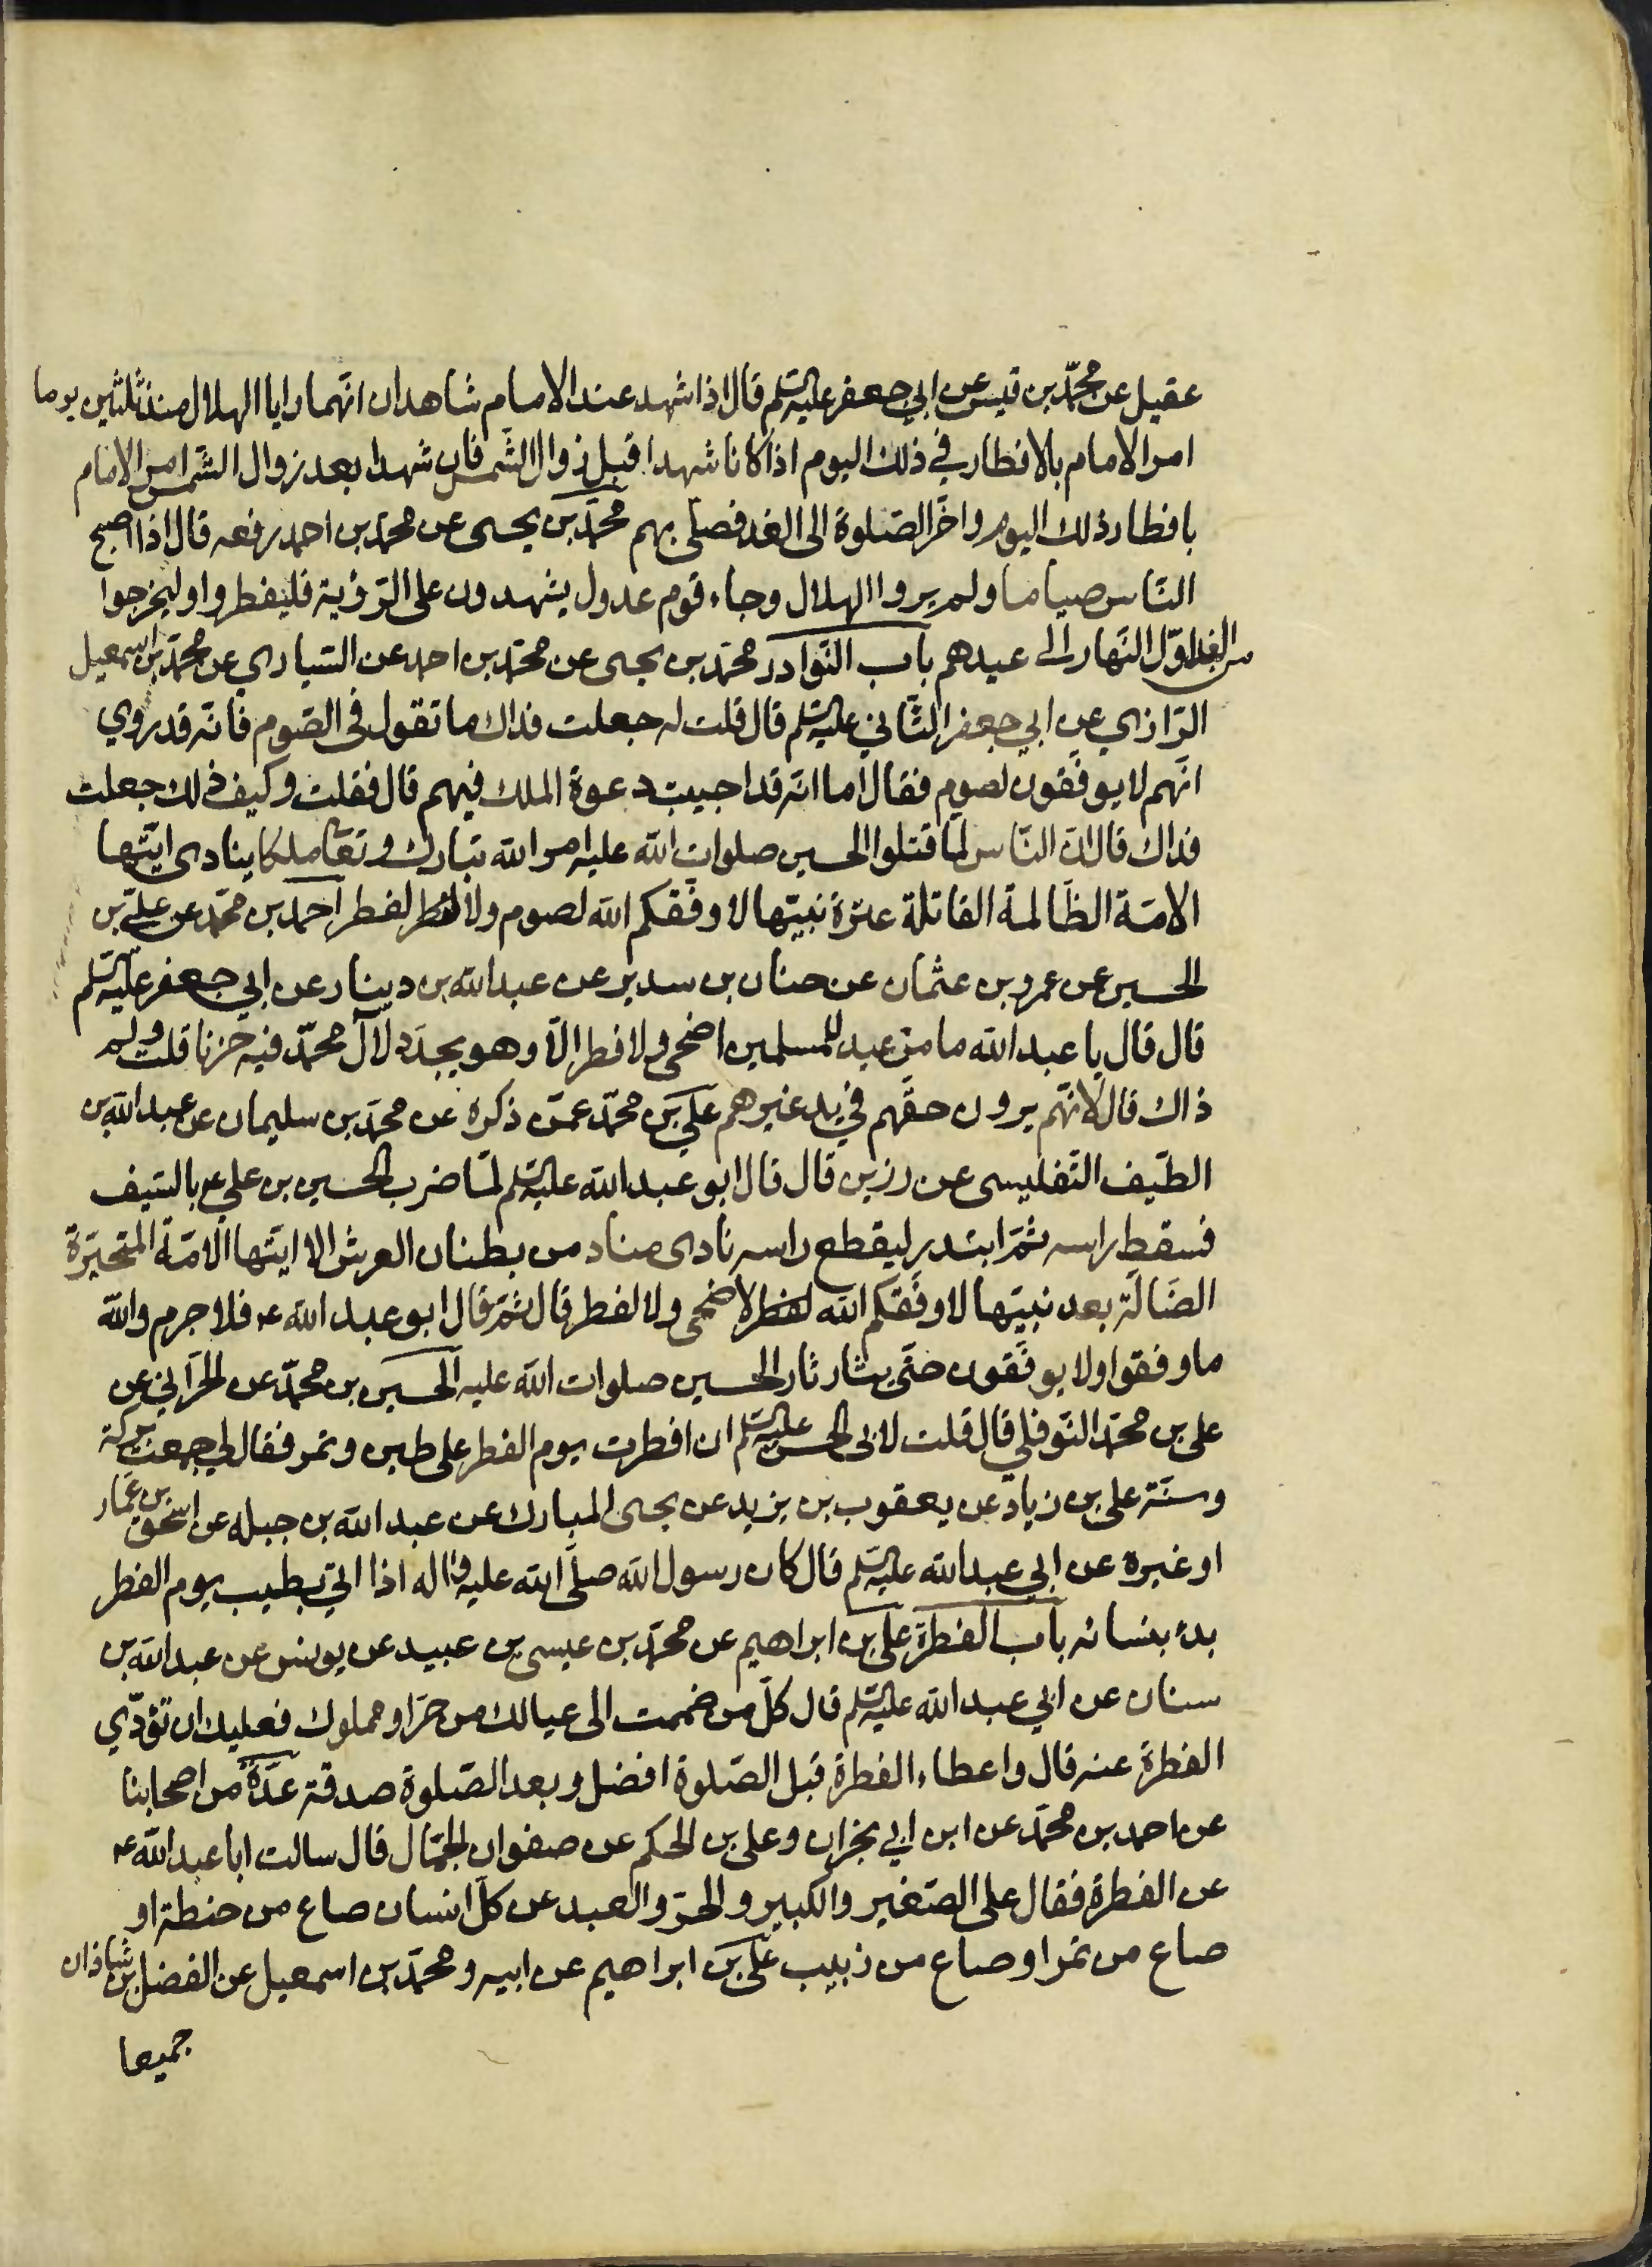 عقيل عن محمّد بن قيس عن ابي جعفر عليه السّلم قال اذا شهد عند الامام شاهدان انّهما رايا الهلال منذ ثلثين يوما
امر الامام بالافطار في ذلك اليوم اذا كانا شهدا قبل زوال الشّمس فان شهدا بعد زوال الشّمس امر الامام
بافطار ذلك اليوم واخّر الصّلوة الى الغد فصلّى بهم محمّد بن يحيى عن محمّد بن احمد رفعه قال اذا اصبح
النّاس صياما ولم يروا الهلال وجاء قوم عدول يشهدون على الرّؤية فليفطروا وليخرجوا
من الغد اوّل النّهار الى عيدهم باب النّوادر محمّد بن يحيى عن محمّد بن احمد عن السّياري عن محمّد بن اسمعيل
الرّازي عن ابي جعفر الثّاني عليه السّلم قال قلت له جعلت فداك ما تقول في الصّوم فانّه قد روي
انّهم لا يوفّقون لصوم فقال اما انّه قد اجيبت دعوة الملك فيهم قال فقلت وكيف ذلك جعلت
فداك قال انّ النّاس لمّا قتلوا الحسين صلوات الله عليه امر الله تبارك وتعا ملكا ينادي ايّتها
الامّة الظّالمة القاتلة عترة نبيّها لا وفّقكم الله لصوم ولا لفطر احمد بن محمّد عن عليّ بن
الحسين عن عمرو بن عثمان عن حنان بن سدير عن عبد الله بن دينار عن ابي جعفر عليه السّلم
قال قال يا عبد الله ما من عيد للمسلمين اضحى ولا فطر الّا وهو يجدّد لآل محمّد فيه حزنا قلت ولم
ذاك قال لانّهم يرون حقّهم في يد غيرهم علي بن محمّد عمّن ذكره عن محمّد بن سليمان عن عبد الله بن
الطّيف التّفليسى عن رزين قال قال ابو عبد الله عليه السّلم لمّا ضرب الحسين بن علي ع بالسّيف
فسقط راسه ثمّ ابتدر ليقطع راسه نادى مناد من بطنان العرش الا ايّتها الامّة المتحيّرة
الضّالّة بعد نبيّها لا وفّقكم الله لاضحى ولا لفطر قال ثمّ قال ابو عبد الله ع فلا جرم والله
ما وفقوا ولا يوفّقون حتّى يثار ثار الحسين صلوات الله عليه الحسين بن محمّد عن الحرّاني عن
على بن محمّد النّوفلي قال قلت لابى الحسن عليه السّلم انى افطرت يوم الفطر على طين وتمر فقال لي جمعت بركة
وسنّة على بن زياد عن يعقوب بن يزيد عن يحيى المبارك عن عبد الله بن جبله عن اسحق بن عمّار
او غيره عن ابي عبد الله عليه السّلم قال كان رسول الله صلّى الله عليه واله اذا اتي بطيب يوم الفطر
بدء بنسائه باب الفطرة على بن ابراهيم عن محمّد بن عيسى بن عبيد عن يونس عن عبد الله بن
سنان عن ابي عبد الله عليه السّلم قال كلّ من ضممت الى عيالك من حرّ او مملوك فعليك ان تؤدّي
الفطرة عنه قال واعطاء الفطرة قبل الصّلوة افضل وبعد الصّلوة صدقة عدّة من اصحابنا
عن احمد بن محمّد عن ابن ابي نجران وعلى بن الحكم عن صفوان الجمّال قال سالت ابا عبد الله ع
عن الفطرة فقال على الصّغير والكبير والحرّ والعبد عن كلّ انسان صاع من حنطة او
صاع من تمر او صاع من زبيب علي بن ابراهيم عن ابيه ومحمّد بن اسمعيل عن الفضل بن شاذان
جميعا